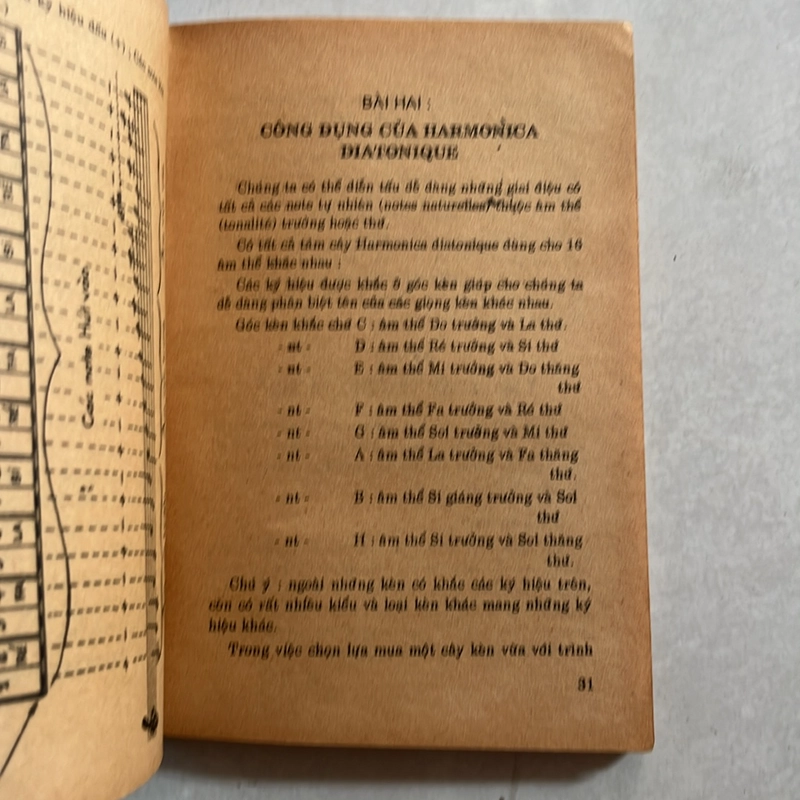 ký hiệu dấu (+) : Các
Các note Hút vào.
BÀI HAI :
CÔNG DỤNG CỦA HARMONICA
DIATONIQUE
Chúng ta có thể diễn tấu dễ dàng những giai điệu có
tất cả các note tự nhiên (notes naturelles) thuộc âm thể
(tonalité) trưởng hoặc thứ.
Có tất cả tám cây Harmonica diatonique dùng cho 16
âm thể khác nhau :
Các ký hiệu được khắc ở góc kèn giúp cho chúng ta
dễ dàng phân biệt tên của các giọng kèn khác nhau.
Góc kèn khắc chữ C : âm thể Do trưởng và La thứ.
- nt - D : âm thể Ré trưởng và Si thứ
- nt - E : âm thể Mi trưởng và Do thăng
thứ
- nt - F : âm thể Fa trưởng và Ré thứ
- nt - G : âm thể Sol trưởng và Mi thứ
- nt - A : âm thể La trưởng và Fa thăng
thứ.
- nt - B : âm thể Si giáng trưởng và Sol
thứ
- nt - H : âm thể Si trưởng và Sol thăng
thứ.
Chú ý : ngoài những kèn có khắc các ký hiệu trên,
còn có rất nhiều kiểu và loại kèn khác mang những ký
hiệu khác.
Trong việc chọn lựa mua một cây kèn vừa với trình
31